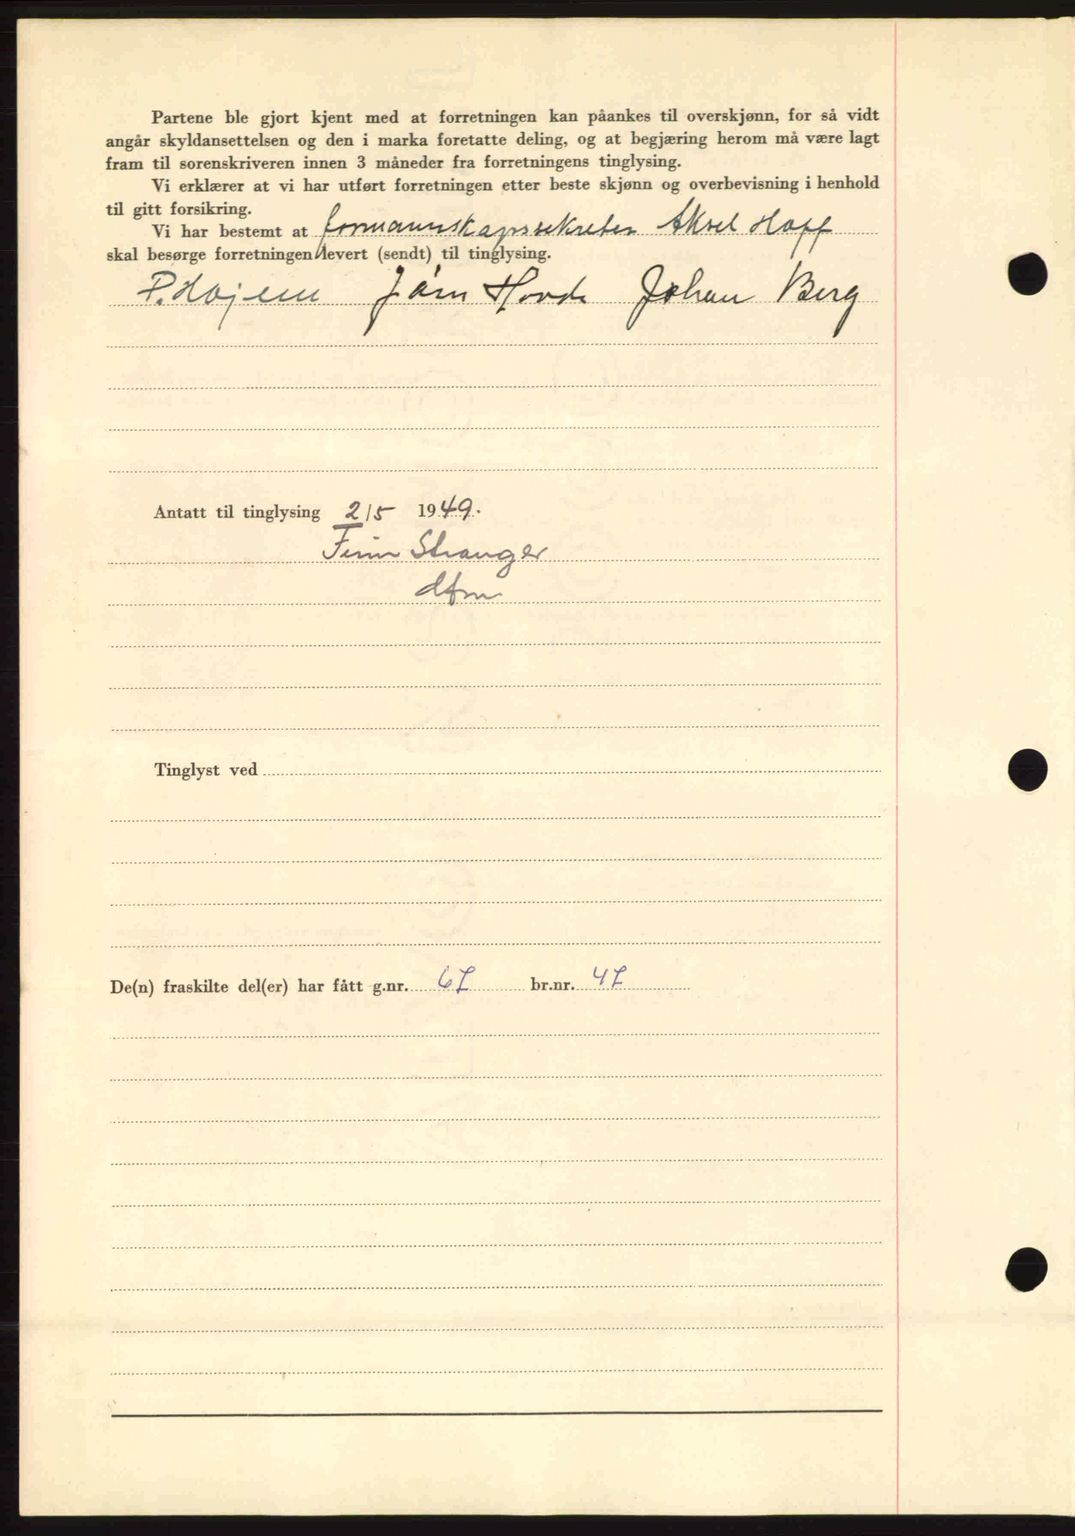 Partene ble gjort kjent med at forretningen kan påankes til overskjønn, for så vidt
angår skyldansettelsen og den i marka foretatte deling, og at begjæring herom må være lagt
fram til sorenskriveren innen 3 måneder fra forretningens tinglysing.
Vi erklærer at vi har utført forretningen etter beste skjønn og overbevisning i henhold
til gitt forsikring.
Vi har bestemt at formannskapssekretær Aksel Hoff
skal besørge forretningen levert (sendt) til tinglysing.
P. Højem Jørn Hovde Johan Berg
Antatt til tinglysing 2/5 1949.
Finn Stranger
dfm
Tinglyst ved
De(n) fraskilte del(er) har fått g.nr. 67 br.nr. 47